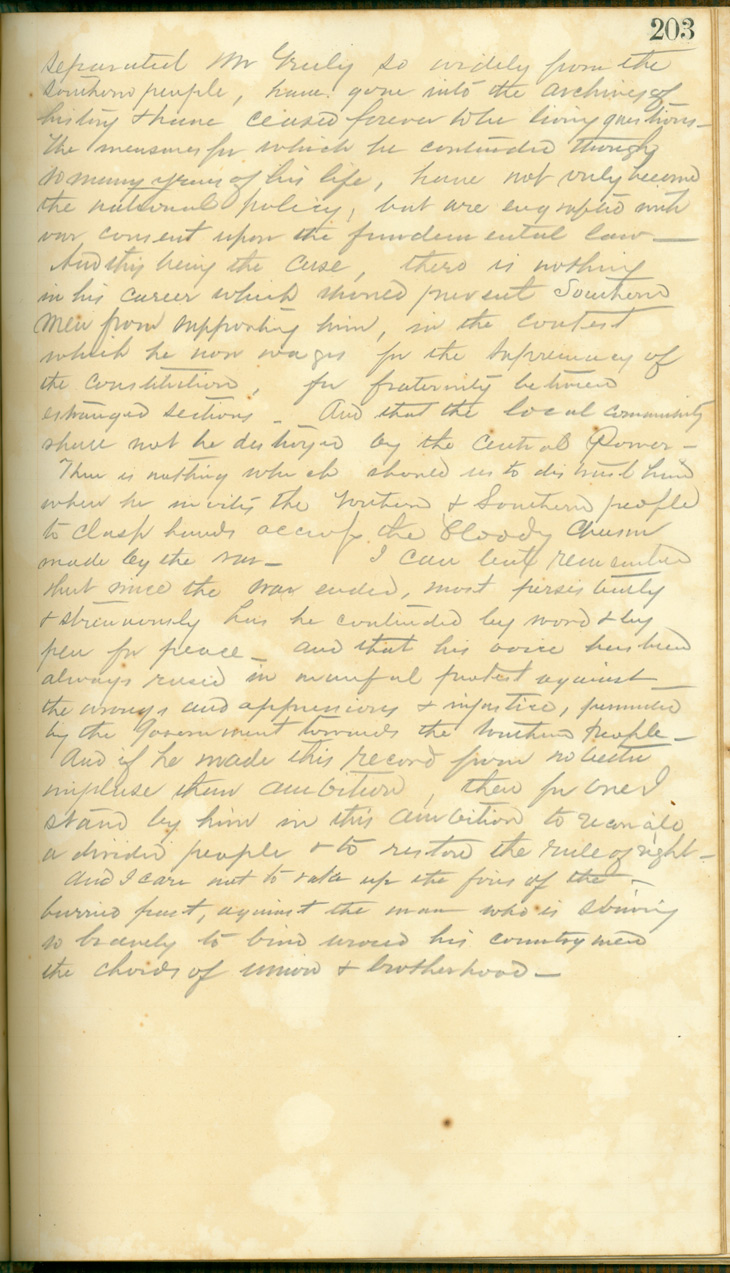 203
separated Mr Greely so widely from the
Southern people, have gone into the archives of
history & have ceased forever to be living questions —
The measures for which he contended through
so many years of his life, have not only become
the national policy, but are engrafted with
our consent upon the fundemental law —
And this being the case, there is nothing
in his career which should prevent Southern
Men from supporting him, in the contest
which he now wages for the supremacy of
the Constitution, for fraternity between
estranged sections — And that the local community
shall not be destroyed by the Central Power —
There is nothing which should us to distrust him
when he invites the Northern & Southern people
to clasp hands accross the Bloody Chasm
made by the war — I can but remember
that since the war ended, most persistently
& strenuously has he contended by word & by
pen for peace — and that his voice has been
always raised in manful protest against
the wrongs and oppressions & injustice, permitted
by the Government towards the Southern People —
And if he made this record from no better
impluse than ambition, then for one I
stand by him in this ambition to reconcile
a divided people & to restore the rule of right —
And I care not to rake up the fires of the
burried past, against the man who is striving
so bravely to bind around his countrymen
the chords of union & brotherhood —